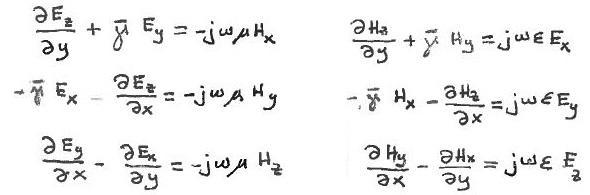 ∂E_z/∂y + γ̄ E_y = -jωμ H_x
∂H_z/∂y + γ̄ H_y = jωε E_x
-γ̄ E_x - ∂E_z/∂x = -jωμ H_y
-γ̄ H_x - ∂H_z/∂x = jωε E_y
∂E_y/∂x - ∂E_x/∂y = -jωμ H_z
∂H_y/∂x - ∂H_x/∂y = jωε E_z